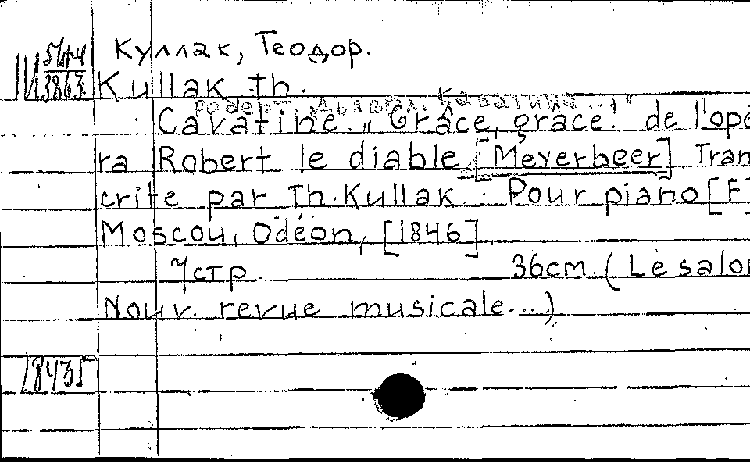 Куллак, Теодор.
Kullak Th.
Cavatine „Grâce, grâce!" de l'opé
ra Robert le diable [Meyerbeer] Tran
crite par Th. Kullak. Pour piano [F
Moscou, Odéon, [1846]
7 стр. 36 cm (Le salon
Nouv. revue musicale...)
18435